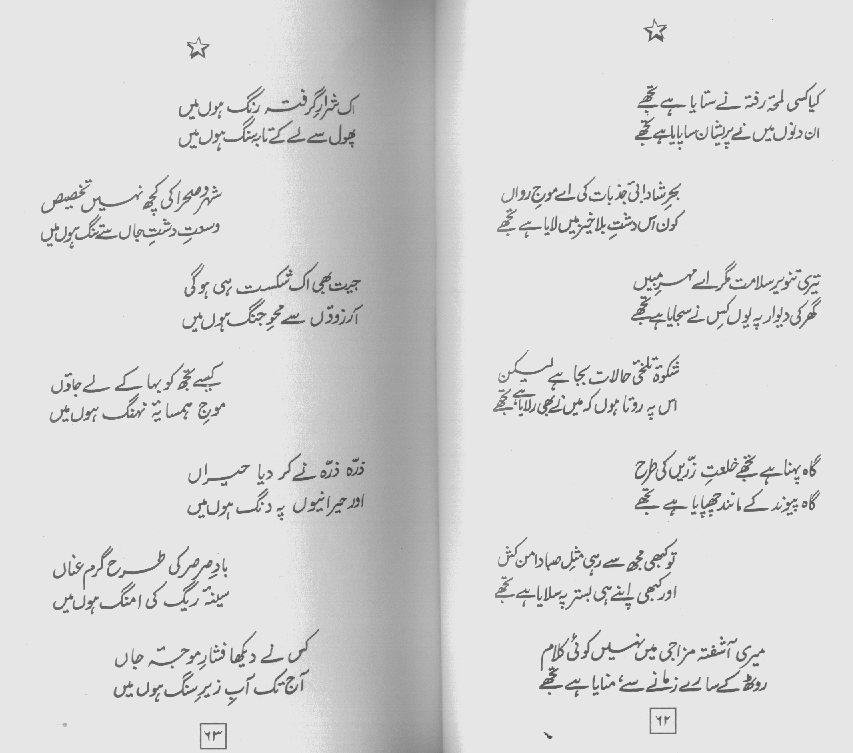 کیا کسی لمحۂ رفتہ نے ستایا ہے تجھے
ان دنوں میں نے پریشان سا پایا ہے تجھے
بحرِ شادابیٔ جذبات کی اے موجِ رواں
کون اس دشتِ بلاخیز میں لایا ہے تجھے
تیری تنویر سلامت مگر اے مہرِ مبیں
گھر کی دیوار پہ یوں کس نے سجایا ہے تجھے
شکوۂ تلخیٔ حالات بجا ہے لیکن
اس پہ روتا ہوں کہ میں نے بھی رلایا ہے تجھے
گاہ پہنا ہے تجھے خلعتِ زرّیں کی طرح
گاہ پیوند کے مانند چھپایا ہے تجھے
تو کبھی مجھ سے رہی مثلِ صبا دامن کش
اور کبھی اپنے ہی بستر پہ سلایا ہے تجھے
میری آشفتہ مزاجی میں نہیں کوئی کلام
روٹھ کے سارے زمانے سے، منایا ہے تجھے
۶۲
اک شرارِ گرفتہ رنگ ہوں میں
پھول سے لے کے تا بہ سنگ ہوں میں
شہر و صحرا کی کچھ نہیں تخصیص
وسعتِ دشتِ جاں سے تنگ ہوں میں
جیت بھی اک شکست ہی ہوگی
آرزوؤں سے محوِ جنگ ہوں میں
کیسے تجھ کو بہا کے لے جاؤں
موجِ ہمسایۂ نہنگ ہوں میں
ذرّہ ذرّہ نے کر دیا حیراں
اور حیرانیوں پہ دنگ ہوں میں
بادِ صرصر کی طرح گرم عناں
سینۂ ریگ کی امنگ ہوں میں
کس نے دیکھا فشارِ موجۂ جاں
آج تک آبِ زیرِ سنگ ہوں میں
۶۳